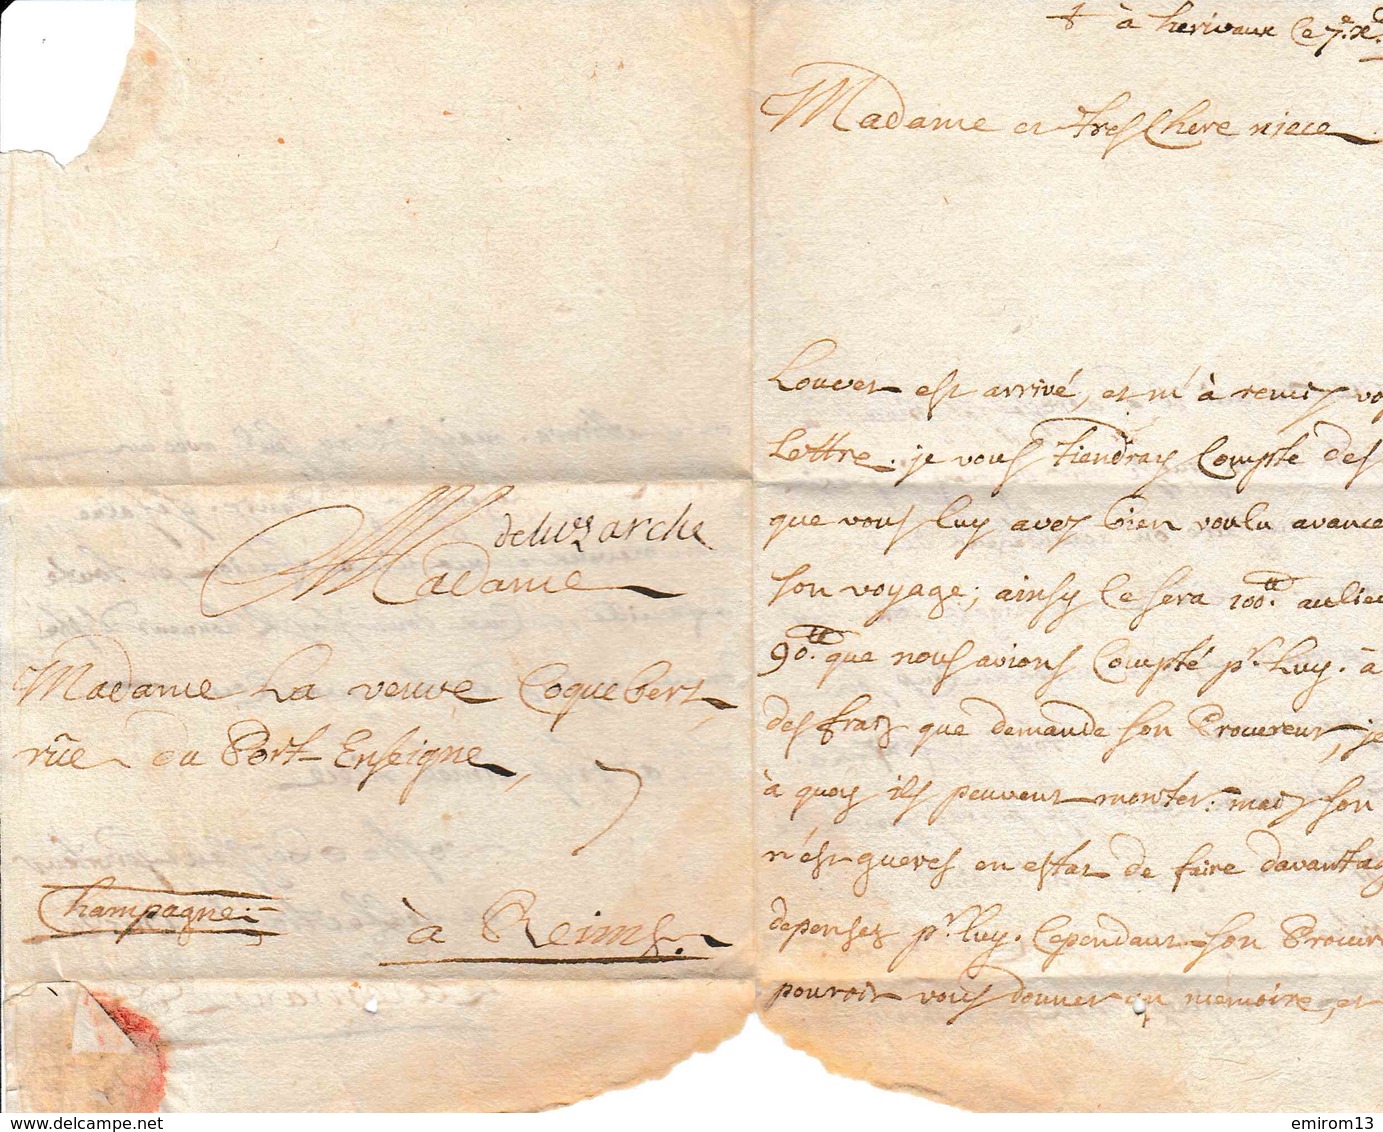 de Luzarche
Madame
Madame La veuve Coquebert,
rüe du Port-Enseigne,
Champagne:
à Reims.
† à herivaux le 7.e x
Madame et tres Chere niece
Louvet est arrivé, et m'à remis vo
Lettre. je vous tiendray Compte des
que vous luy avez bien voulu avance
son voyage; ainsy Ce sera 100.tt aulieu
90.tt que nous avions Compté pr. Luy. à
des frais que demande son Procureur, je
à quoy ils peuvent monter: mais son
n'est gueres en estat de faire davantag
depenses pr. luy. Cependant son Procure
pouroit vous donner un memoire, et
www.delcampe.net
emirom13